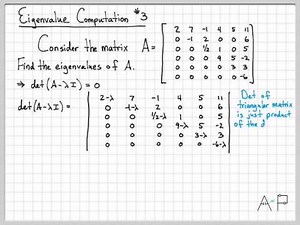 Eigenvalue Computation #3
Consider the matrix A =
2 7 -1 4 5 11
0 -1 2 0 0 6
0 0 1/2 1 0 5
0 0 0 4 5 -2
0 0 0 0 3 3
0 0 0 0 0 -6
Find the eigenvalues of A.
⇒ det(A-λI) = 0
det(A-λI) =
2-λ 7 -1 4 5 11
0 -1-λ 2 0 0 6
0 0 1/2-λ 1 0 5
0 0 0 4-λ 5 -2
0 0 0 0 3-λ 3
0 0 0 0 0 -6-λ
Det of
triangular matrix
is just product
of the d